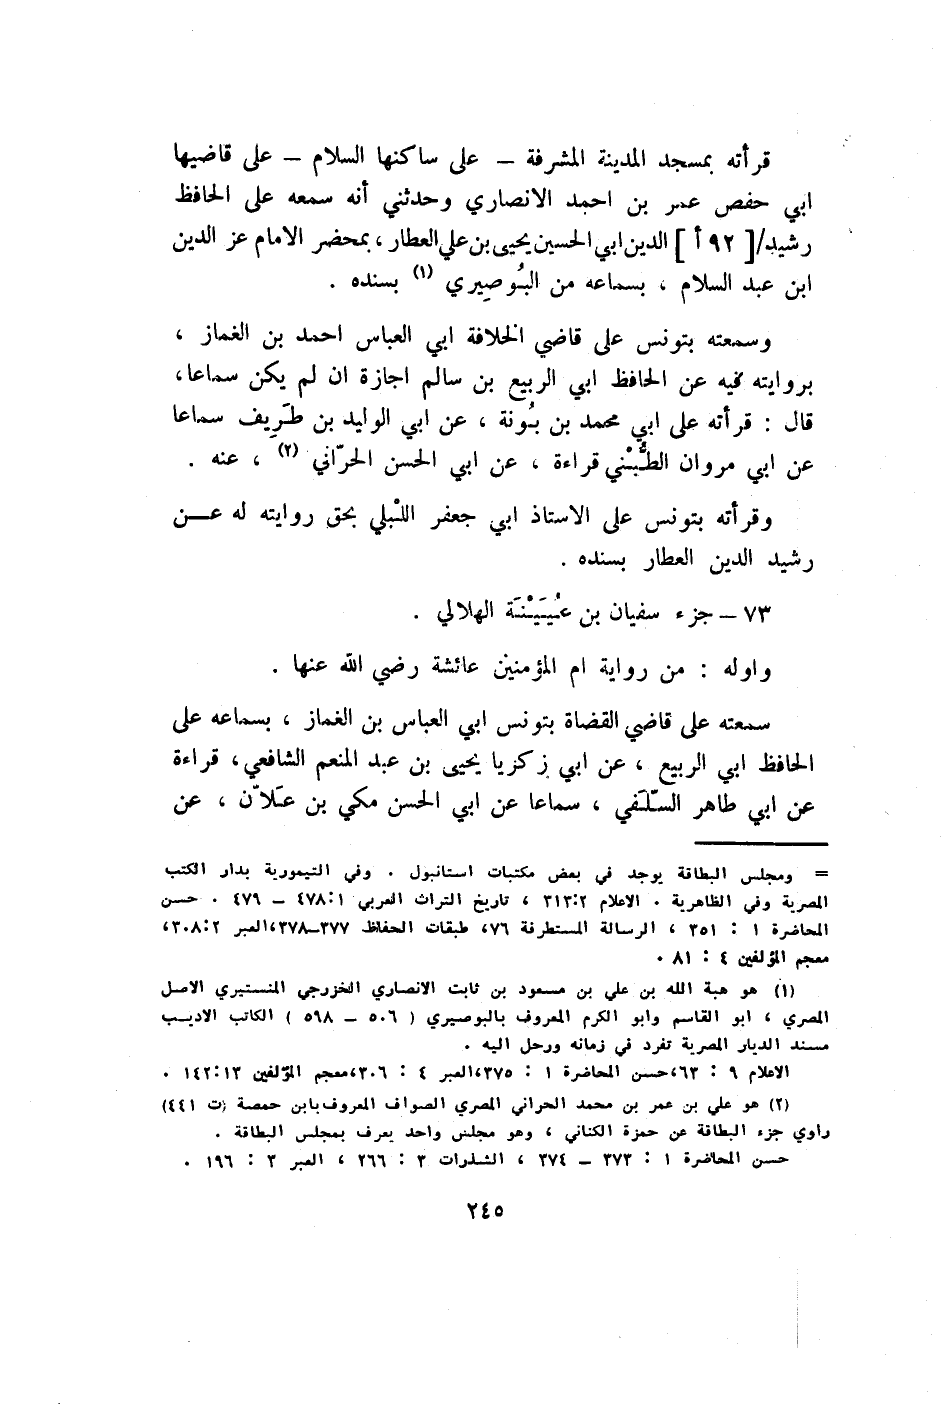 قرأته بمسجد المدينة المشرفة — على ساكنها السلام — على قاضيها
ابي حفص عمر بن احمد الانصاري وحدثني أنه سمعه على الحافظ
رشيد/[ ٩٢ أ ] الدين ابي الحسين يحيى بن علي العطار ، بمحضر الامام عز الدين
ابن عبد السلام ، بسماعه من البُوصِيري (١) بسنده .
وسمعته بتونس على قاضي الخلافة ابي العباس احمد بن الغماز ،
بروايته فيه عن الحافظ ابي الربيع بن سالم اجازة ان لم يكن سماعا،
قال : قرأته على ابي محمد بن بُونة ، عن ابي الوليد بن طَرِيف سماعا
عن ابي مروان الطُّبْني قراءة ، عن ابي الحسن الحرّاني (٢) ، عنه .
وقرأته بتونس على الاستاذ ابي جعفر اللبْلي بحق روايته له عـن
رشيد الدين العطار بسنده .
٧٣ — جزء سفيان بن عُيَيْنَة الهلالي .
واوله : من رواية ام المؤمنين عائشة رضي الله عنها .
سمعته على قاضي القضاة بتونس ابي العباس بن الغماز ، بسماعه على
الحافظ ابي الربيع ، عن ابي زكريا يحيى بن عبد المنعم الشافعي، قراءة
عن ابي طاهر السّلَفي ، سماعا عن ابي الحسن مكي بن عَلاّن ، عن
= ومجلس البطاقة يوجد في بعض مكتبات استانبول . وفي التيمورية بدار الكتب
المصرية وفي الظاهرية . الاعلام ٣١٣:٢ ، تاريخ التراث العربي ٤٧٨:١ — ٤٧٩ . حسن
المحاضرة ١ : ٣٥١ ، الرسالة المستطرفة ٧٦، طبقات الحفاظ ٣٧٧—٣٧٨،العبر ٣٠٨:٢،
معجم المؤلفين ٤ : ٨١ .
(١) هو هبة الله بن علي بن مسعود بن ثابت الانصاري الخزرجي المنستيري الاصل
المصري ، ابو القاسم وابو الكرم المعروف بالبوصيري ( ٥٠٦ — ٥٩٨ ) الكاتب الاديـب
مسند الديار المصرية تفرد في زمانه ورحل اليه .
الاعلام ٩ : ٦٣،حسن المحاضرة ١ : ٣٧٥،العبر ٤ : ٣٠٦،معجم المؤلفين ١٤٢:١٣ .
(٢) هو علي بن عمر بن محمد الحراني المصري الصواف المعروف بابن حمصة (ت ٤٤١)
راوي جزء البطاقة عن حمزة الكناني ، وهو مجلس واحد يعرف بمجلس البطاقة .
حسن المحاضرة ١ : ٣٧٣ — ٣٧٤ ، الشذرات ٣ : ٢٦٦ ، العبر ٣ : ١٩٦ .
٢٤٥